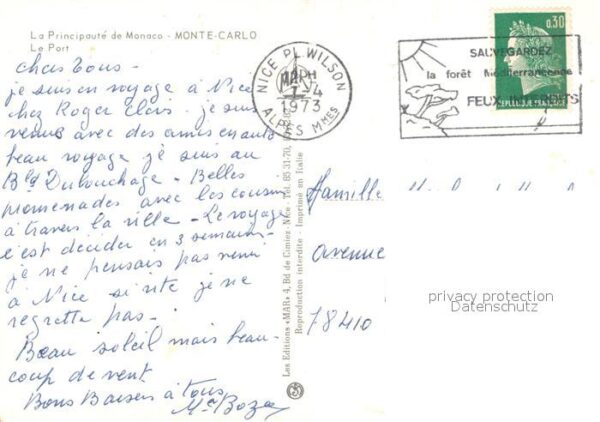 La Principauté de Monaco - MONTE-CARLO
Le Port
chers tous -
je suis en voyage à Nice
chez Roger Clois. je suis
venue avec des amis en auto
beau voyage je suis au
Bld Dubouchage - Belles
promenades avec les cousins
à travers la ville - Le voyage
c'est décider en 3 semaines -
je ne pensais pas venir
à Nice si vite je ne
regrette pas -
Beau soleil mais beau-
coup de vent.
Bons Baisers à tous
Les Editions «MAR» 4, Bd de Cimiez - Nice - Tél. 85 31-70,
Reproduction interdite - Imprimé en Italie
NICE PL WILSON
1973
ALPES Mmes
SAUVEGARDEZ
la forêt Méditerranéenne
FEUX
0,30
REPUBLIQUE FRANCAISE
Famille
Avenue
78410
privacy protection
Datenschutz